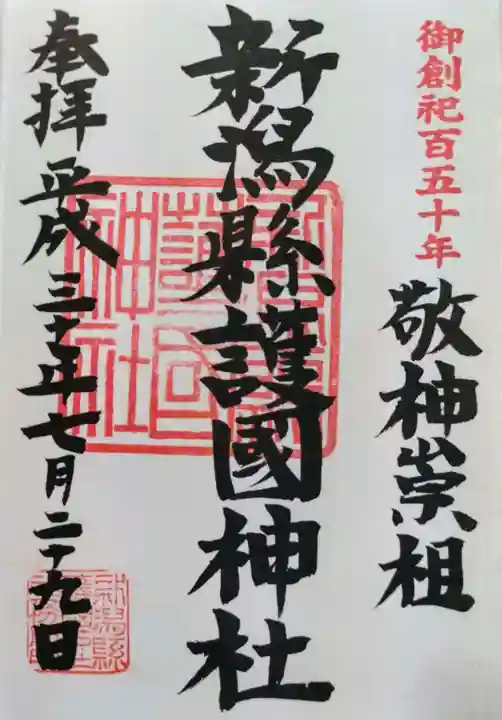 御創祀百五十年
敬神崇祖
新潟縣護國神社
奉拝 平成三十年七月二十九日